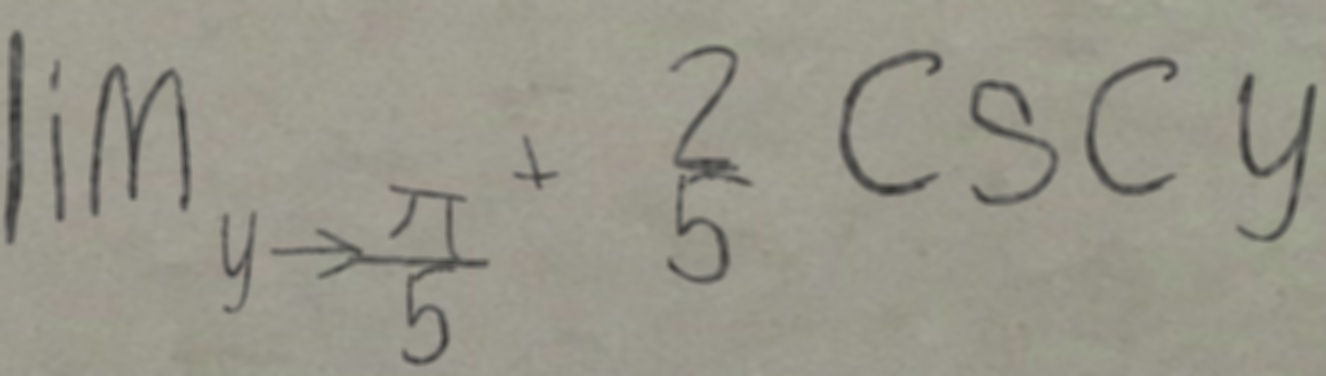 lim_{y→\frac{π}{5}^+} \frac{2}{5} csc y